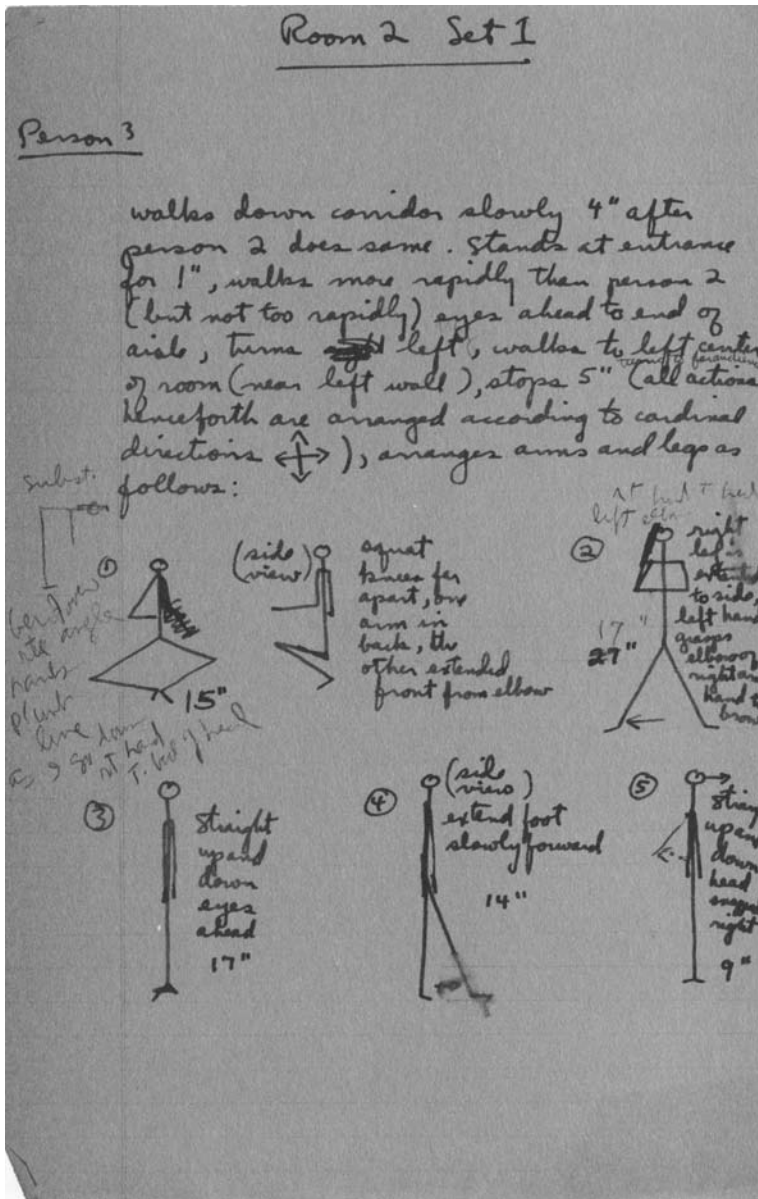 Room 2 Set 1
Person 3
walks down corridor slowly 4" after
person 2 does same. Stands at entrance
for 1", walks more rapidly than person 2
(but not too rapidly) eyes ahead to end of
aisle, turns left, walks to left center
of room (near left wall), stops 5" (all actions
henceforth are arranged according to cardinal
directions ), arranges arms and legs as
follows:
Subst.
①
15"
(side
view)
squat
knees far
apart, one
arm in
back, the
other extended
front from elbow
②
left elbow
17"
27"
right
leg is
extended
to side,
left hand
grasps
elbow of
right arm
hand to
brow
bend over
angle
hands
plumb
line
as go down
rt hand
③
straight
up and
down
eyes
ahead
17"
④
(side
view)
extend foot
slowly forward
14"
⑤
straight
up and
down
head
right
9"